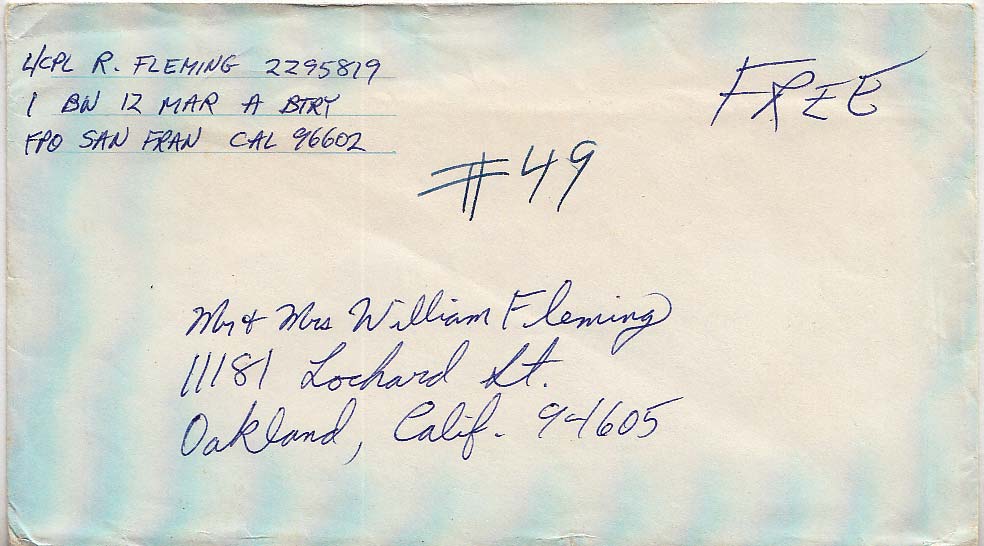 L/CPL R. FLEMING 2295819
1 BN 12 MAR A BTRY
FPO SAN FRAN CAL 96602
FREE
#49
Mr & Mrs William Fleming
11181 Lochard St.
Oakland, Calif. 94605